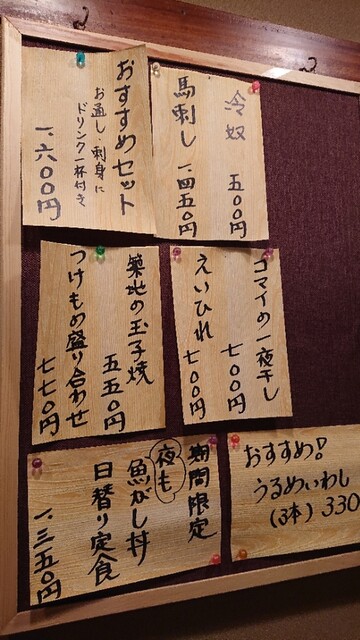 おすすめセット
お通し・刺身に
ドリンク一杯付き
一、六〇〇円
冷奴 五〇〇円
馬刺し 一、四五〇円
築地の玉子焼
五五〇円
つけもの盛り合わせ
七七〇円
コマイの一夜干し
七〇〇円
えいひれ
七〇〇円
期間限定
夜も
魚がし丼
日替り定食
一、三五〇円
おすすめ!
うるめいわし
(3本) 330